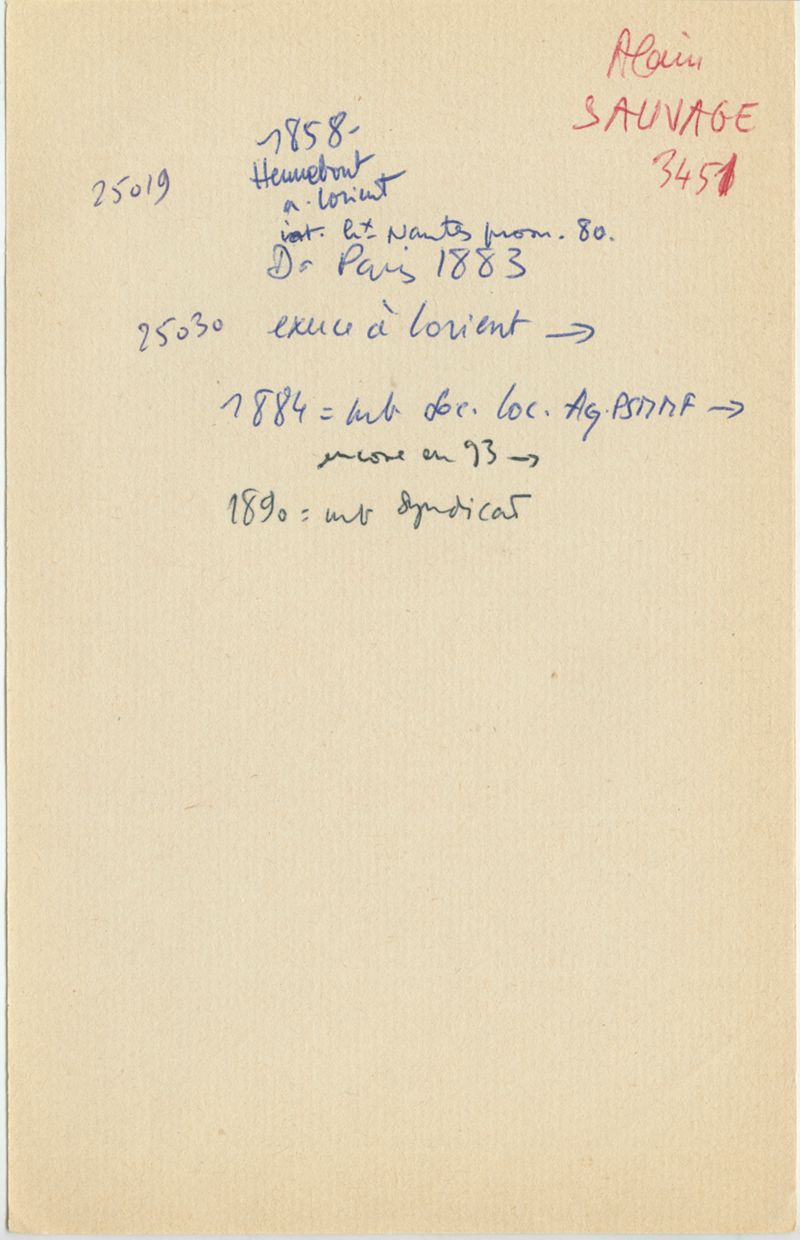 Alain
SAUVAGE
3451
1858-
Hennebont
25019
a. Lorient
int. htx Nantes prom. 80.
Dr Paris 1883
25030 exerce à Lorient →
1884 = mb soc. loc. Ag. PSMMF →
encore en 93 →
1890 = mb Syndicat